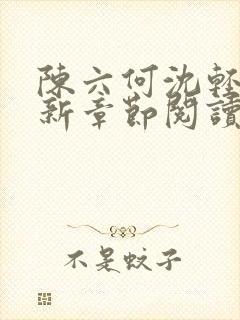 陳六何沈輕
新章節閱讀
不是蚊子